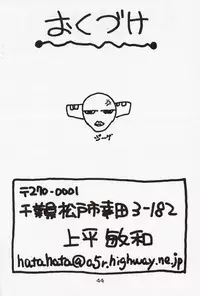 おくづけ
ジーグ
〒270-0001
千葉県松戸市幸田3-182
上平敏和
hatahata@o5r.highway.ne.jp
44